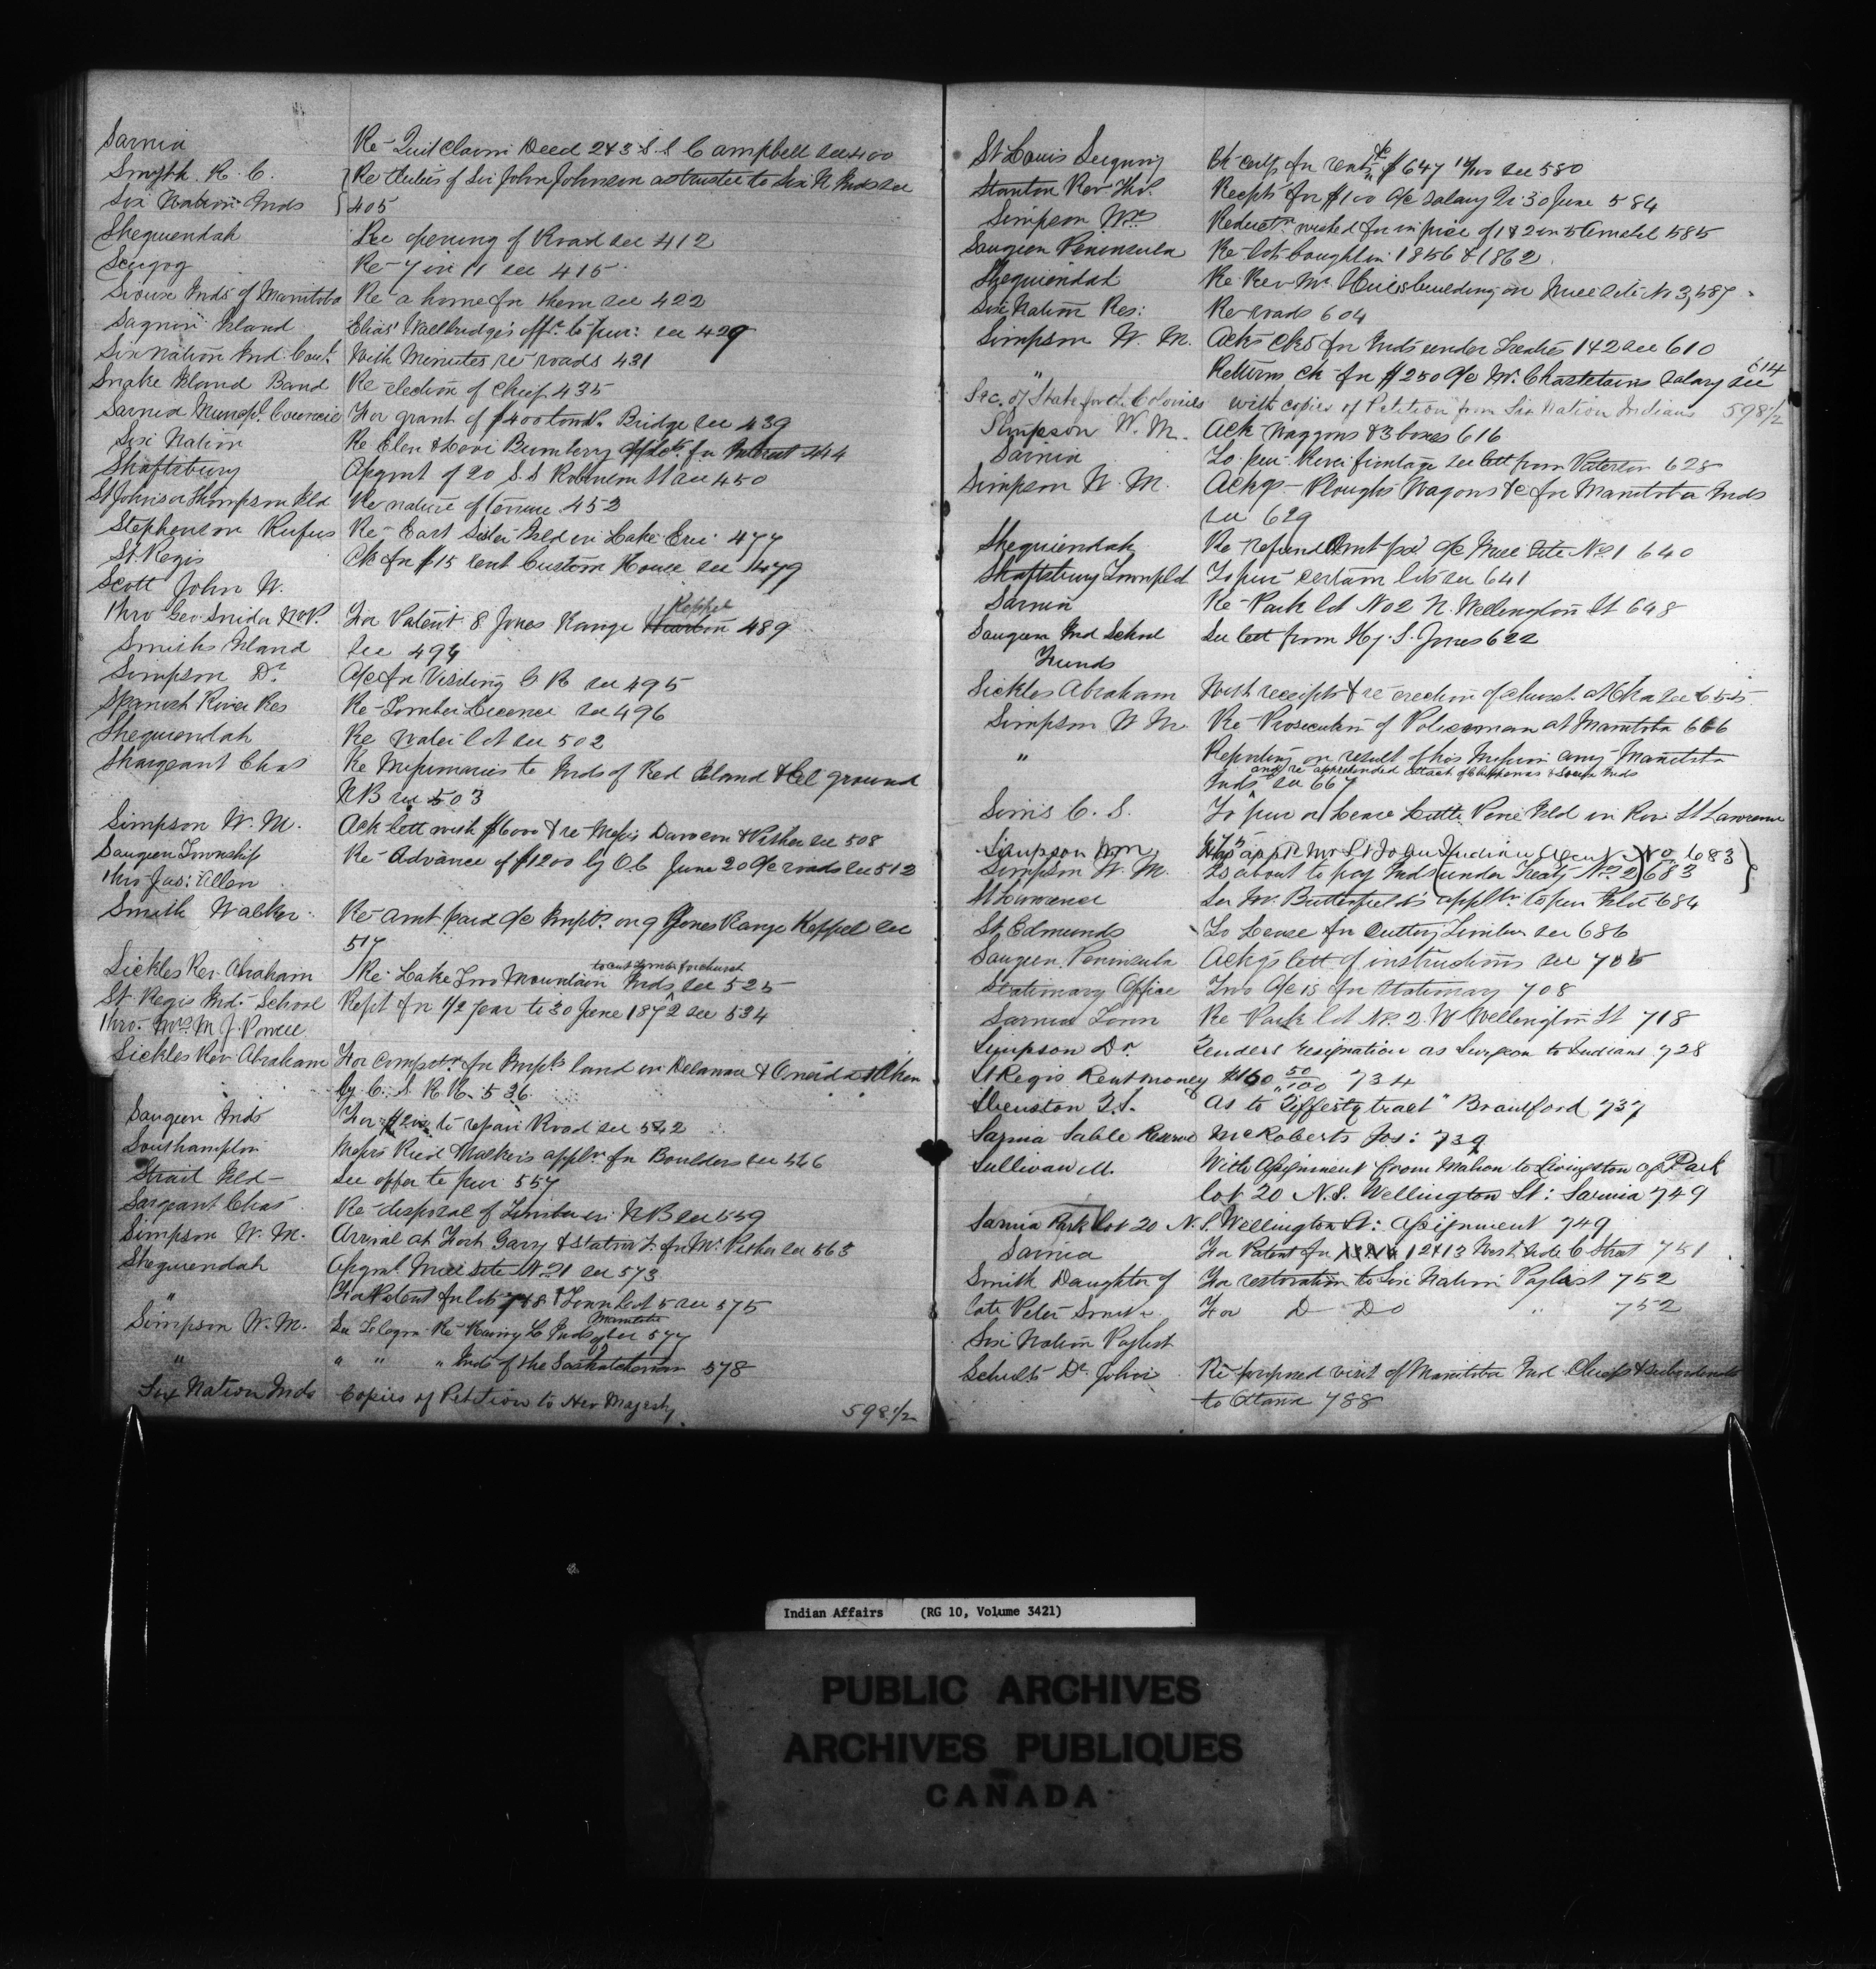 Sarnia Re Quit Claim Deed 243 S. S Campbell see 400
Smyth R. C. Re duties of Sir John Johnson as trustee to Six N Inds see
Six Nation Inds 405
Sheguiendah Re opening of Road see 412
Scugog Re 7 in 11 see 415
Sioux Inds of Manitoba Re a home for them see 422
Island Elias Wallbridge's offr. to pur: see 429
Six Nation Ind Coun. With Minutes re roads 431
Snake Island Band Re election of Chief 435
Sarnia Municpl. Council For grant of $400 towds. Bridge see 439
Six Nation Re Elen & Levi Bumbery for Interest 444
Shaftsbury Asgmt of 20 S. S Robinson St see 450
St Johns or Thompson Isld Re nature of tenure 452
Stephenson Rufus Re East Sister Isld in Lake Erie 477
St. Regis Ck for $15 rent Custom House see 479
Scott John W.
Keppel
Thro Geo. Snider M.P. For Patent 8 Jones Range Wiarton 489
Smiths Island See 494
Simpson Dr. A/c for Visiting C R see 495
Spanish River Res Re Timber Licence see 496
Sheguiendah Re water lot see 502
Shargeant Chas Re Missionaries to Inds of Red Island & Eel ground
NB see 503
Simpson W. M. Ack lett with $6000 & re Messrs Dawson & Pither see 508
Saugeen Township Re Advance of $1200 by O.C. June 20 a/c roads see 512
thro Jas: Allen
Smith Walker Re amt paid a/c Impts. on 9 Jones Range Keppel see
517
to cut timber for church
Sickles Rev. Abraham Re Lake Two Mountain Inds see 525
St Regis Ind. School Rept for 1/2 year to 30 June 1872 see 534
Thro. Mrs M J. Powell
Sickles Rev Abraham For compstn. for Impts land in Delaware & Oneida taken
by C. S. R R. 536
Saugeen Inds For $200 to repair Road see 542
Southampton Messrs Reid Walker's appln. for Boulders see 546
Strait Isld – See offer to pur 557
Sargeant Chas Re disposal of Timber in NB see 559
Simpson W. M. Arrival at Fort Gary & for Mr. Pither see 563
Sheguiendah Asgmt. Mill Site No 21 see 573
" For Patent for lots 7 & 8 & Town lot 5 see 575
Manitoba
Simpson W. M. See Telegm Re Inds of see 577
" " " " Inds of the Saskatchewan 578
Six Nation Inds Copies of Petition to Her Majesty 598 1/2
St Louis Seigniory Ck for rents $647 see 580
Stanton Rev Thos. Receipts for $100 a/c salary to 30 June 584
Simpson Wm Reductn. wished for in price of 1 & 2 in 5 Amabel 585
Saugeen Peninsula Re lot bought in 1856 & 1862
Sheguiendah Re Rev Mr. building on Mill Site No 3, 587
Six Nation Res: Re roads 604
Simpson W. M. Acks cks for Inds under Treaties 1 & 2 see 610
" Returns ck for $250 a/c Mr. Chastelains salary see 614
Sec. of State for the Colonies with copies of Petition from Six Nation Indians 598 1/2
Simpson W. M. Ack Waggons & 3 boxes 616
Sarnia To pur River frontage see lett from Vaterson 628
Simpson W. M. Ackgs – Ploughs Wagons &c for Manitoba Inds
see 629
Sheguiendah Re refund Amt pd a/c Mill Site No 1 640
Shaftsbury Townpld To pur certain lots see 641
Sarnia Re Park lot No 2 N. Wellington St 648
Saugeen Ind School See lett from Hy. S. Jones 622
Funds
Sickles Abraham With receipts & re erection of church at Oka see 655
Simpson W M. Re Prosecution of Policeman at Manitoba 666
" Reporting on result of his Mission amg Manitoba
and re apprehended attack of Chippewas & Sioux Inds
Inds see 667
Simis C. S. To pur or Lease Little Pine Isld in Riv. St Lawrence
Simpson Wm Has appt'd Mr St John Indian Agent No 683
Simpson W. M. Is about to pay Inds (under Treaty No. 2) 683
St Lawrence See Mr. Butterfield's appltn to pur Isld 684
St. Edmunds To Lease for cutting Timber see 686
Saugeen Peninsula Ackgs lett of instructions see 705
Stationary Office Two a/cs for Stationary 708
Sarnia Town Re Park lot No. 2. W Wellington St 718
Simpson Dr. Tenders resignation as Surgeon to Indians 728
St Regis Rent money $160 50/100 734
Shenston T. S. As to "Jefferty tract" Brantford 737
Sarnia Sable Reserve McRoberts Jos: 739
Sullivan M. With Assignment from Mahon to Livingston of Park
lot 20 N. S. Wellington St: Sarnia 749
Sarnia Park lot 20 N. S. Wellington St: Assignment 749
Sarnia For Patent for 12 & 13 West Side C Street 751
Smith Daughter of For restoration to Six Nation Paylist 752
late Peter Smith For Do Do " 752
Six Nation Paylist
Schultz Dr. John Re proposed visit of Manitoba Ind Chiefs & subordinates
to Ottawa 788
Indian Affairs (RG 10, Volume 3421)
PUBLIC ARCHIVES
ARCHIVES PUBLIQUES
CANADA